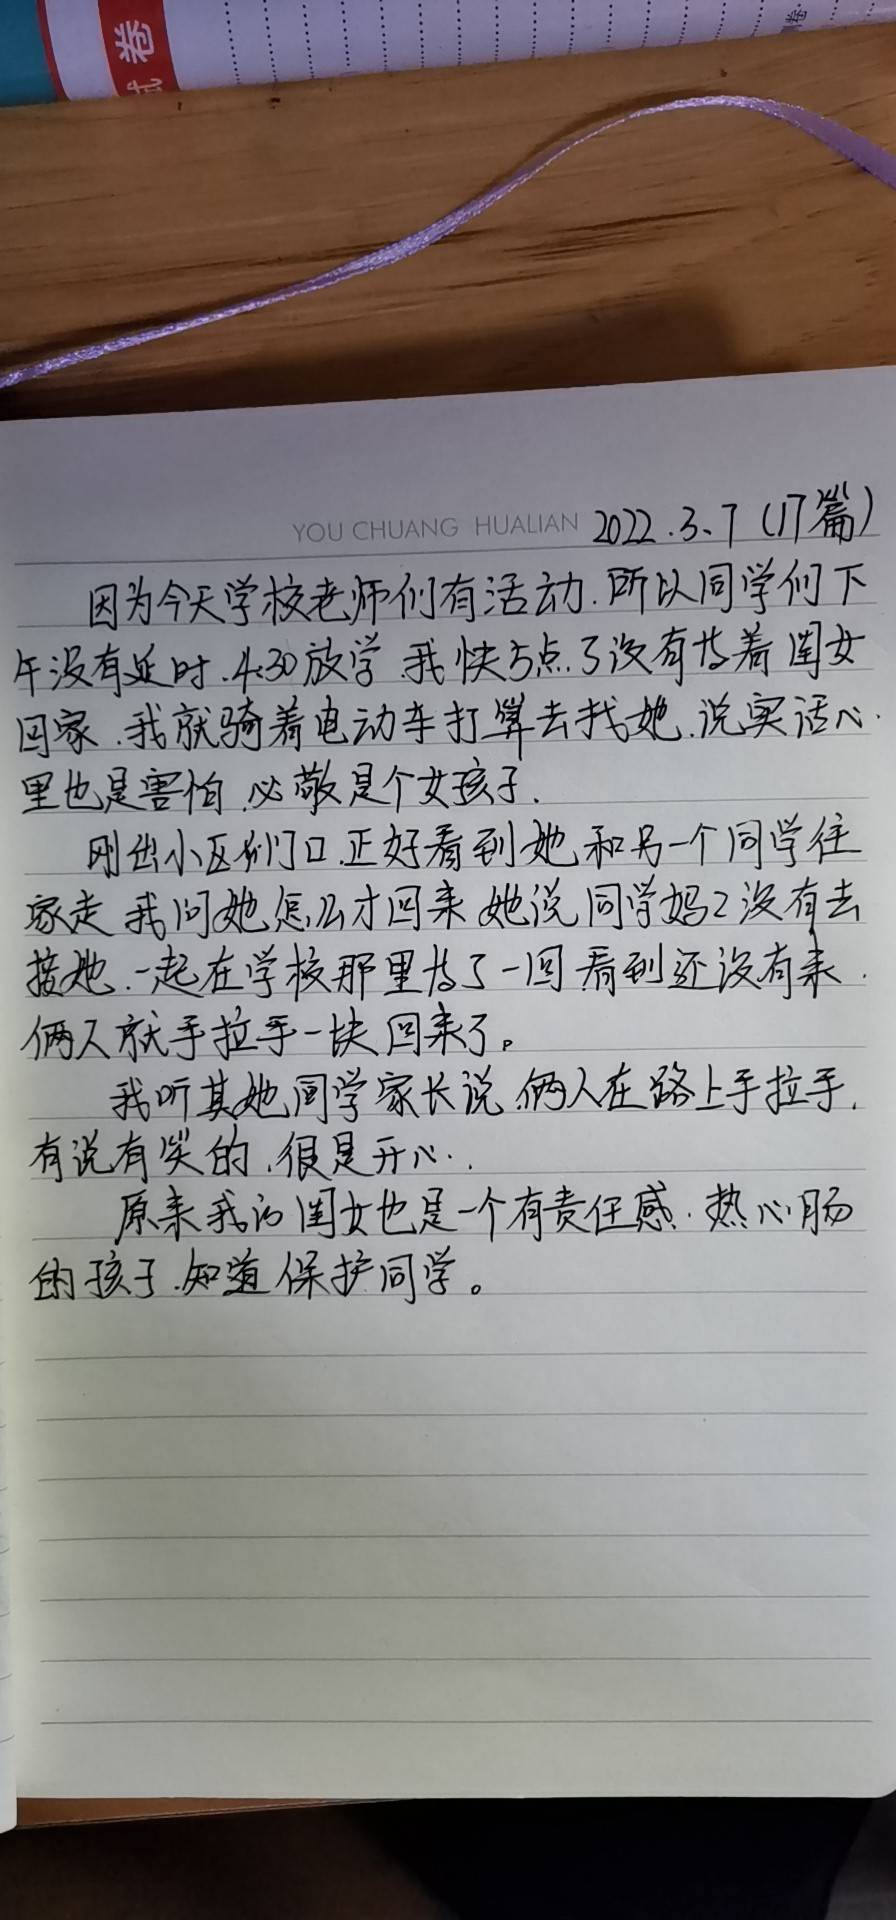 试卷
卷
YOU CHUANG HUALIAN 2022.3.7(17篇)
因为今天学校老师们有活动.所以同学们下
午没有延时.4:30放学.我快5点了没有等着闺女
回家.我就骑着电动车打算去找她.说实话心.
里也是害怕.必敬是个女孩子.
刚出小区门口.正好看到她和另一个同学往
家走.我问她怎么才回来.她说同学妈々没有去
接她.一起在学校那里等了一回.看到还没有来.
俩人就手拉手一块回来了。
我听其她同学家长说.俩人在路上手拉手.
有说有笑的.很是开心..
原来我的闺女也是一个有责任感.热心肠
的孩子.知道保护同学。